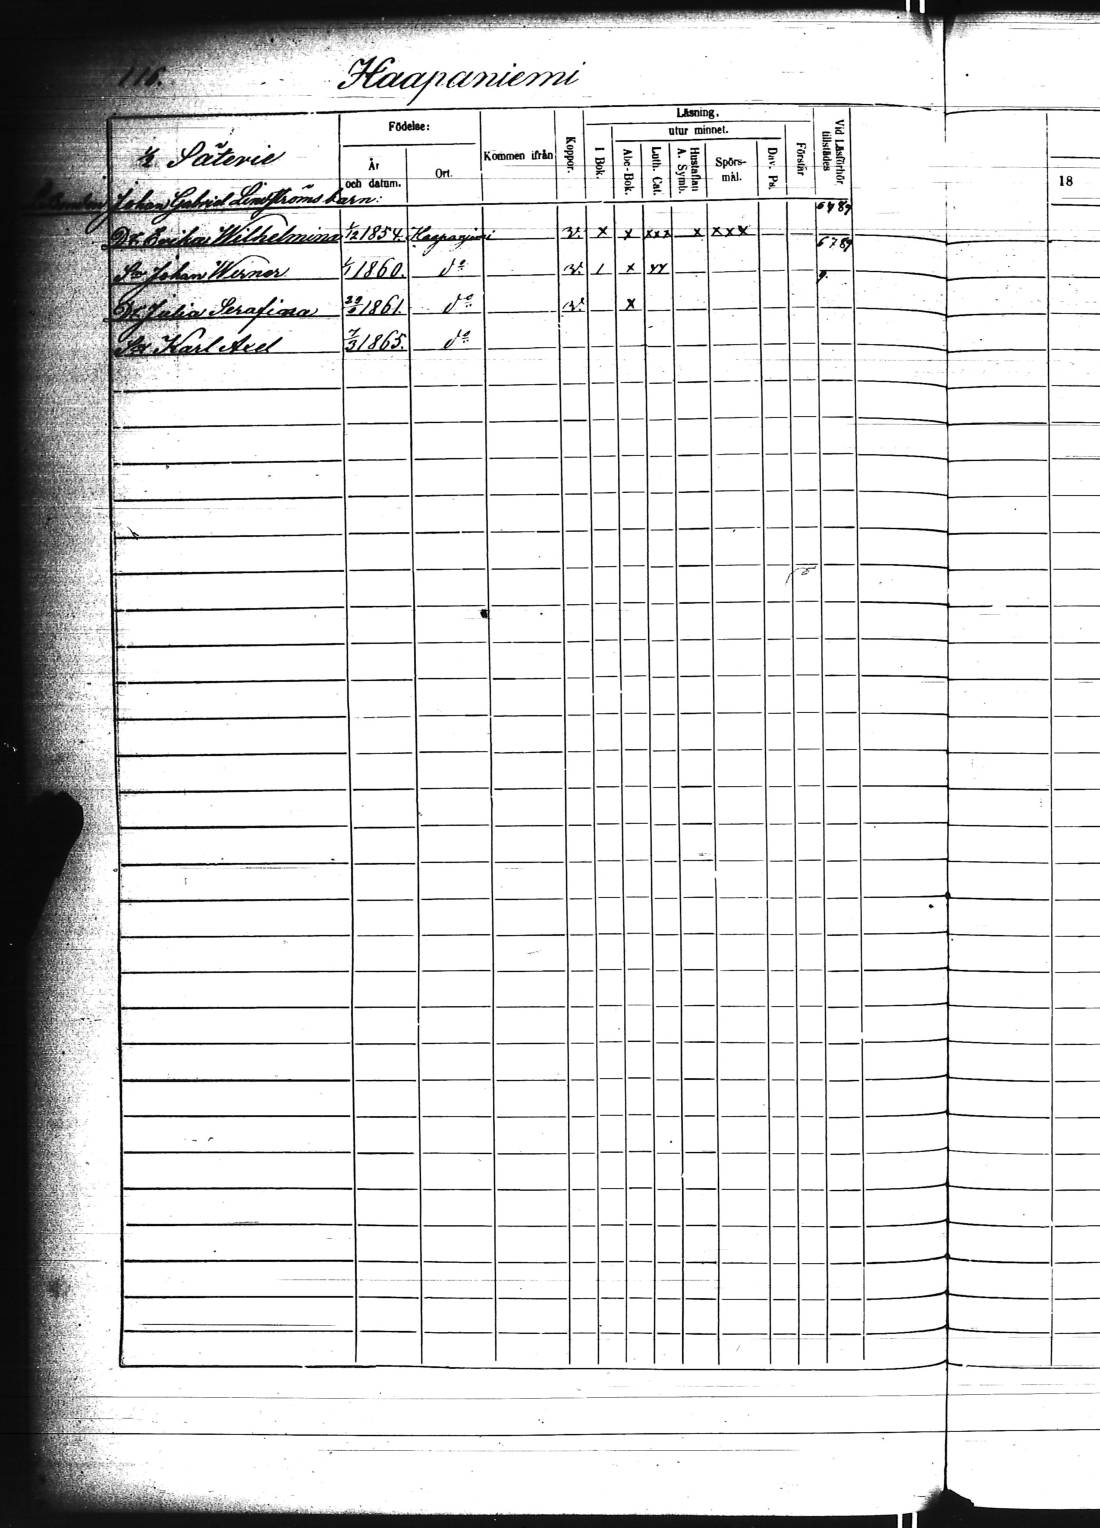 116.
Haapaniemi
½ Säterie
Födelse:
År och datum.
Ort.
Kommen ifrån
Koppor.
Läsning.
I Bok.
utur minnet.
Abc-Bok.
Luth. Cat.
Hustaflan A. Symb.
Spörs-mål.
Dav. Ps.
Förstår
Vid Läsförhör tillstädes
18
Johan Gabriel Lindströms barn:
Dr. Erika Wilhelmina 1/12 1854. Haapaniemi v. x x xxx x xxx 6 7 8 9
Sn Johan Werner 1860. do v. 1 x xx 6 7 8 9
Dr. Julia Serafina 1861. do v. x 9.
Sn Karl Axel 7/3 1865. do